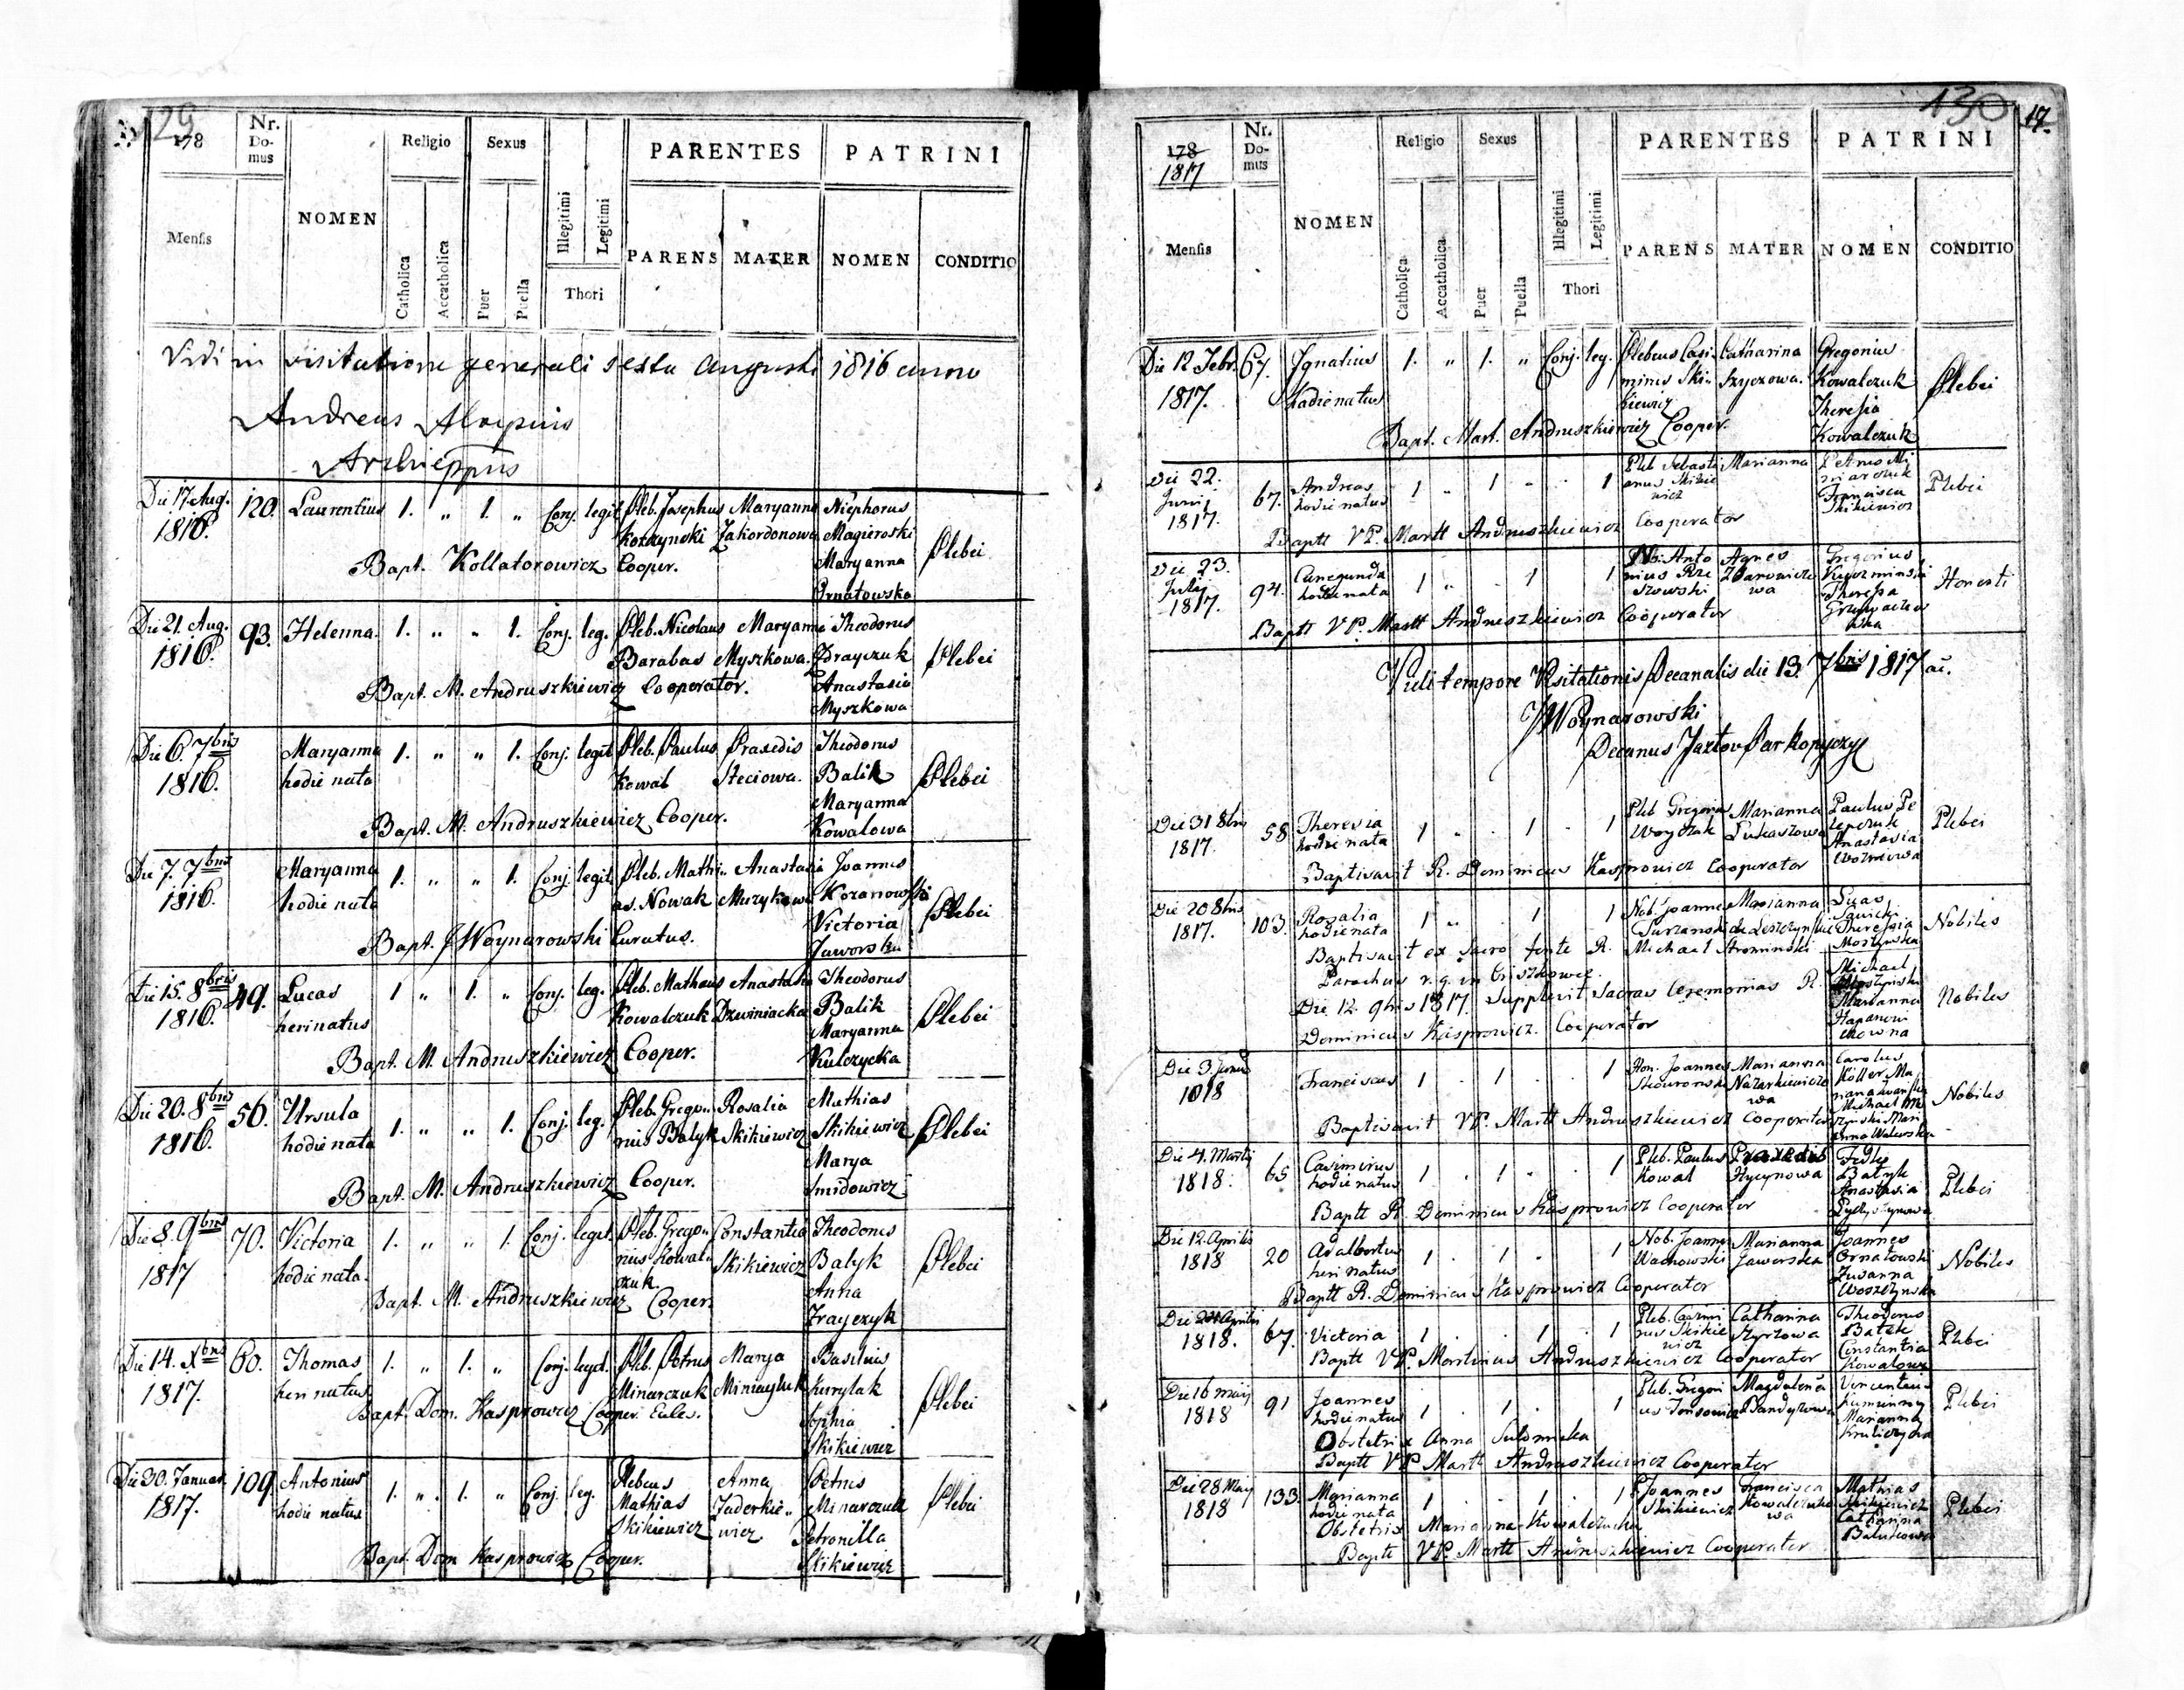 129
178
Nr. Do- mus
NOMEN
Religio
Sexus
PARENTES
PATRINI
Mensis
Catholica
Accatholica
Puer
Puella
Illegitimi
Legitimi
Thori
PARENS
MATER
NOMEN
CONDITIO
Vidi in visitatione generali sexta Augusti 1816 anno
Andreas Aloysius
Archieppus
Die 17. Aug. 120. Laurentius 1. " 1. " Conj. legit. Pleb. Josephus Maryanna Nicphorus
1816. Kotzynski Zakordonowa Magieroski
Bapt. Kollatorowicz Cooper. Maryanna Plebei
Ornatowska
Die 21. Aug. 93. Helenna. 1. " " 1. Conj. leg. Pleb. Nicolaus Maryanna Theodorus
1816. Barabas Myszkowa. Drayczuk Plebei
Bapt. M. Andruszkiewicz Cooperator. Anastasia
Myszkowa
Die 6. 7bris Maryanna 1. " " 1. Conj. legit. Pleb. Paulus Praxedis Theodorus
1816. hodie nata Kowal Steciowa. Balik Plebei
Maryanna
Bapt. M. Andruszkiewicz Cooper. Kowalowa
Die 7. 7bris Maryanna 1. " " 1. Conj. legit. Pleb. Mathi- Anastasia Joannes
1816. hodie nata as. Nowak Muzykowa Kozanowski
Victoria Plebei
Bapt. J Woynarowski Curatus. Jaworska
Die 15. 8bris 49. Lucas 1 " 1. " Conj. leg. Pleb. Matheus Anastasia Theodorus
1816. heri natus Kowalczuk Dzwiniacka Balik
Maryanna Plebei
Bapt. M. Andruszkiewicz Cooper. Kulczycka
Die 20. 8bris 56. Ursula 1. " " 1. Conj. leg. Pleb. Grego- Rosalia Mathias
1816. hodie nata rius Balyk Skikiewicz Skikiewicz Plebei
Marya
Bapt. M. Andruszkiewicz Cooper. Smidowicz
Die 8. 9bris 70. Victoria 1. " " 1. Conj. legit. Pleb. Grego- Constantia Theodorus
1817 hodie nata. rius Kowal- Skikiewicz Balyk Plebei
czuk Anna
Bapt. M. Andruszkiewicz Cooper. Trayczyk
Die 14. Xbris 60. Thomas 1. " 1. " Conj. legit. Pleb. Petrus Marya Basilius
1817. heri natus Minarczuk Kurylak
Bapt. Dom. Kasprowicz Cooper. Sophia Plebei
Skikiewicz
Die 30. Januar. 109. Antonius 1. " 1. " Conj. leg. Plebeus Anna Petrus
1817. hodie natus Mathias Jaderkie- Minarczuk Plebei
Skikiewicz wicz Petronilla
Bapt. Dom Kasprowicz Cooper. Skikiewicz
130
17.
178
1817
Nr. Do- mus
NOMEN
Religio
Sexus
PARENTES
PATRINI
Mensis
Catholica
Accatholica
Puer
Puella
Illegitimi
Legitimi
Thori
PARENS
MATER
NOMEN
CONDITIO
Die 12 Febr. 67. Ignatius 1. " 1. " Conj. leg. Plebeus Casi- Catharina Gregorius
1817. hodie natus mirus Ski- Szyrzowa. Kowalczuk Plebei
kiewicz Theresia
Bapt. Mart. Andruszkiewicz Cooper. Kowalczuk
Die 22. 67. Andreas 1 " 1 . . 1 Pleb Sebasti Marianna Petrus Mi
Junij hodie natus anus Skikie narczuk Plebei
1817. wicz Francisca
Baptt VP. Martt Andruszkiewicz Cooperator Skikiewicz
Die 23. Cunegunda 1 " . 1 1 Anto Agnes Gregorius
July 94. hodie nata nius Rze Zdanowiczo Kuczminski Honesti
1817. szowski wa Theresa
Baptt VP. Martt Andruszkiewicz Cooperator
Vidi tempore Visitationis Decanalis die 13. 7bris 1817 ai.
J Woynarowski
Decanus Jazlov Par Kopyczyc
Die 31 8bris 58 Theresia 1 . . 1 . 1 Pleb Gregorius Marianna Paulus Pe
1817. hodie nata Woyczak Lukaszowa lepczuk Plebei
Anastasia
Baptisavit R. Dominicus Kasprowicz Cooperator Woznowa
Die 20 8bris 103. Rosalia 1 " . 1 1 Nob. Joannes Marianna Lucas
1817. hodie nata Surzanski de Leszczynskie Sawicki Nobiles
Theressia
Baptisavit ex Sacro fonte R. Michael Strominski Mostynska
Parochus r. g. in Michael
Die 12. 9bris 1817. Supplevit Sacras Ceremonias R. Marianna Nobiles
Dominicus Kasprowicz. Cooperator
Die 3. Junii Franciscus 1 . 1 . . 1 Hon. Joannes Marianna Carolus
1818 Skowronski Nazarkiewiczo Köller
wa Nobiles
Baptisavit VP. Martt Andruszkiewicz Cooperator
Die 4. Martij 65 Casimirus 1 . 1 . . 1 Pleb. Paulus Praxedis
1818. hodie natus Kowal Hycynowa Balyk
Anastasia Plebei
Baptt R. Dominicus Kasprowicz Cooperator
Die 12. Aprilis 20 Adalbertus 1 . 1 . 1 Nob. Joannes Marianna Joannes
1818 heri natus Wachowski Jaworska Ornatowski Nobiles
Zusanna
Baptt R. Dominicus Kasprowicz Cooperator Woszczynska
Die 24 Aprilis 67. Victoria 1 . . 1 . 1 Pleb. Casimi Catharina Theodorus
1818. rus Skikie Szyrzowa Balek Plebei
wicz Constantia
Baptt VP. Martinus Andruszkiewicz Cooperator Kowalowa
Die 16 maij 91 Joannes 1 . 1 . 1 Pleb. Gregori Magdalena Vincentius
1818 hodie natus us Plebei
Obstetrix Anna Marianna
Baptt VP Martt Andruszkiewicz Cooperator
Die 28 May 133. Marianna 1 . . 1 . 1 Joannes Francisca Mathias
1818 hodie nata Skikiewicz Kowalczuko Skikiewicz
Obstetrix Marianna Kowalczucka wa Catharina Plebei
Baptt VP. Martt Andruszkiewicz Cooperator